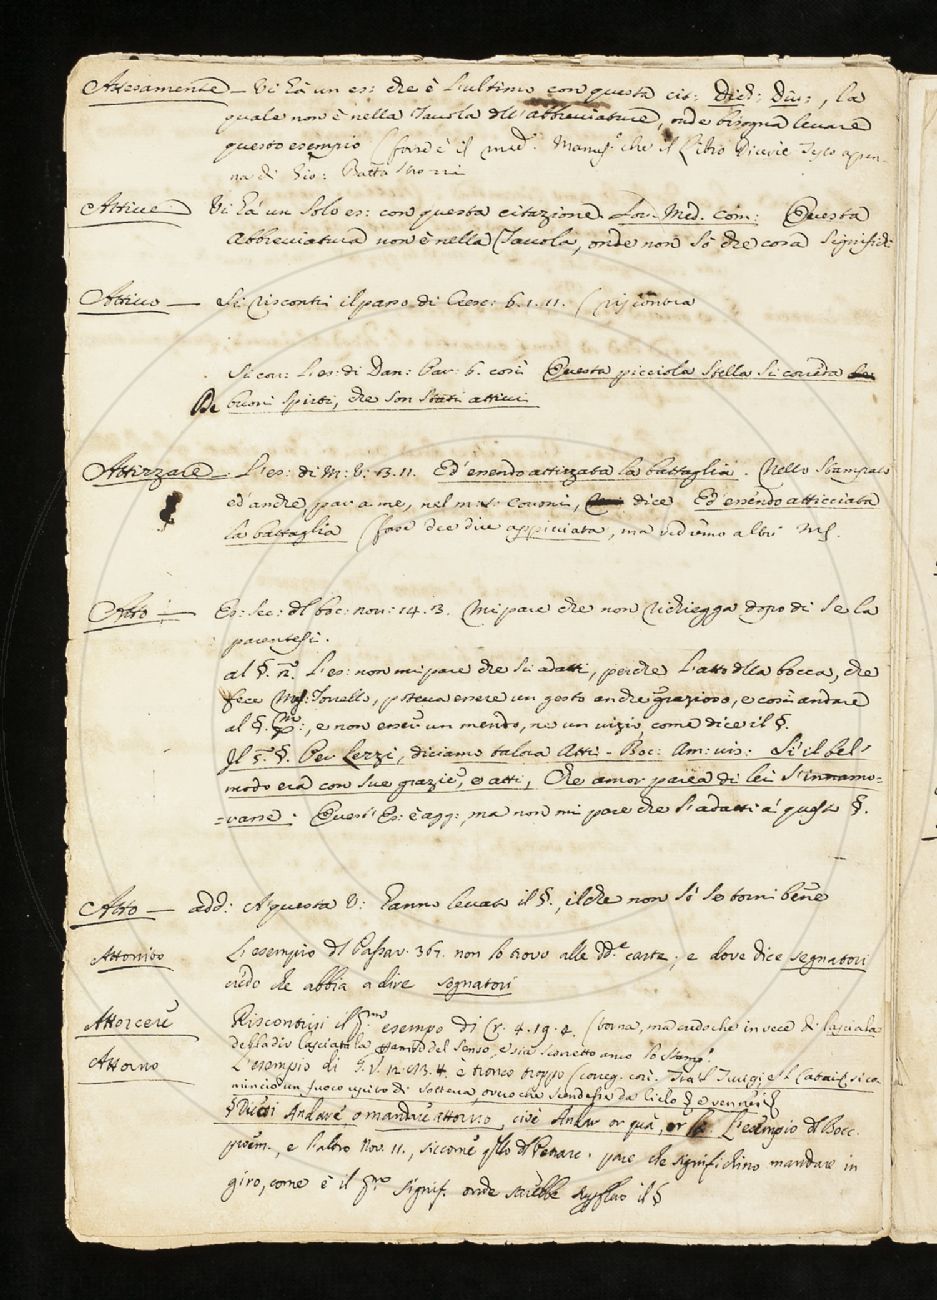 Attesamente – Vi ha un es: che è l'ultimo con questa cit: Dicer: Div:, la
quale non è nella Tavola dell'abbreviature, onde bisogna levare
questo esempio (forse è il med.o Manus.o che il Libro
na di Gio: Batta Strozzi
Attive Vi ha un solo es: con questa citazione. Lor. Med. com: Questa
Abbreviatura non è nella Tavola, onde non so che cosa significhi
Attivo – Si riscontri il passo di Cresc: 6.1.11. (
Si cor: L'es: di Dan: Par: 6. così Questa picciola stella si correda
De buoni spirti, che son stati attivi
Attizzare – L'es: di M: V: 13.11. Ed essendo attizzata la battaglia. Nello Stampato
ed anche, par a me, nel m.s: Covoni, dice Ed essendo atticciata
la battaglia (forse dee dire appicciata, ma vedremo altri MS.
Atto – Es: Sec: del boc: nov: 14.13. Mi pare che non richiegga dopo di se la
parentesi.
al §. L'es: non mi pare che si adatti, perche l'atto della bocca, che
fece Ms: Torello, poteva essere un gesto anche grazioso, e così andare
al §. , e non esser un mendo, ne un vizio, come dice il §.
Il §. Per Lezzi, diciamo talora Atti – Boc: Am: vis: Si il bel
modo era con sue grazie, e atti, Che amor parea di lei s'innamo=
=rasse: Quest'Es: è agg:, ma non mi pare che s'adatti a questo §.
Atto – add: A questa V: hanno levato il §., il che non so se torni bene
Attonito L'esempio del Passav: 367. non lo trovo alle dd.e carte; e dove dice segnatori
credo che abbia a dire sognatori
Attorcere Riscontrisi il p.mo esempo di Cr. 4.19.4. (torna, ma credo che in vece di lasciala
debba dir lasciatala del senso, e sia scorretto anco lo Stamp.o
Attorno L'esempio di G.V. 12.113.4. e tronco troppo (correg. così. Tra'l Tuvigi, e'l Cataio si co=
minciò un fuoco uscito di sotterra, ovvero che scendesse da cielo
§ Dicesi Andare, o mandare attorno, cioè Andar or quà, or là L'esempio del Bocc.
proem., e l'altro Nov. 11., siccome q.llo del Petrarc. pare che significhino mandare in
giro, come è il p.mo signif. onde sarebbe superfluo il §